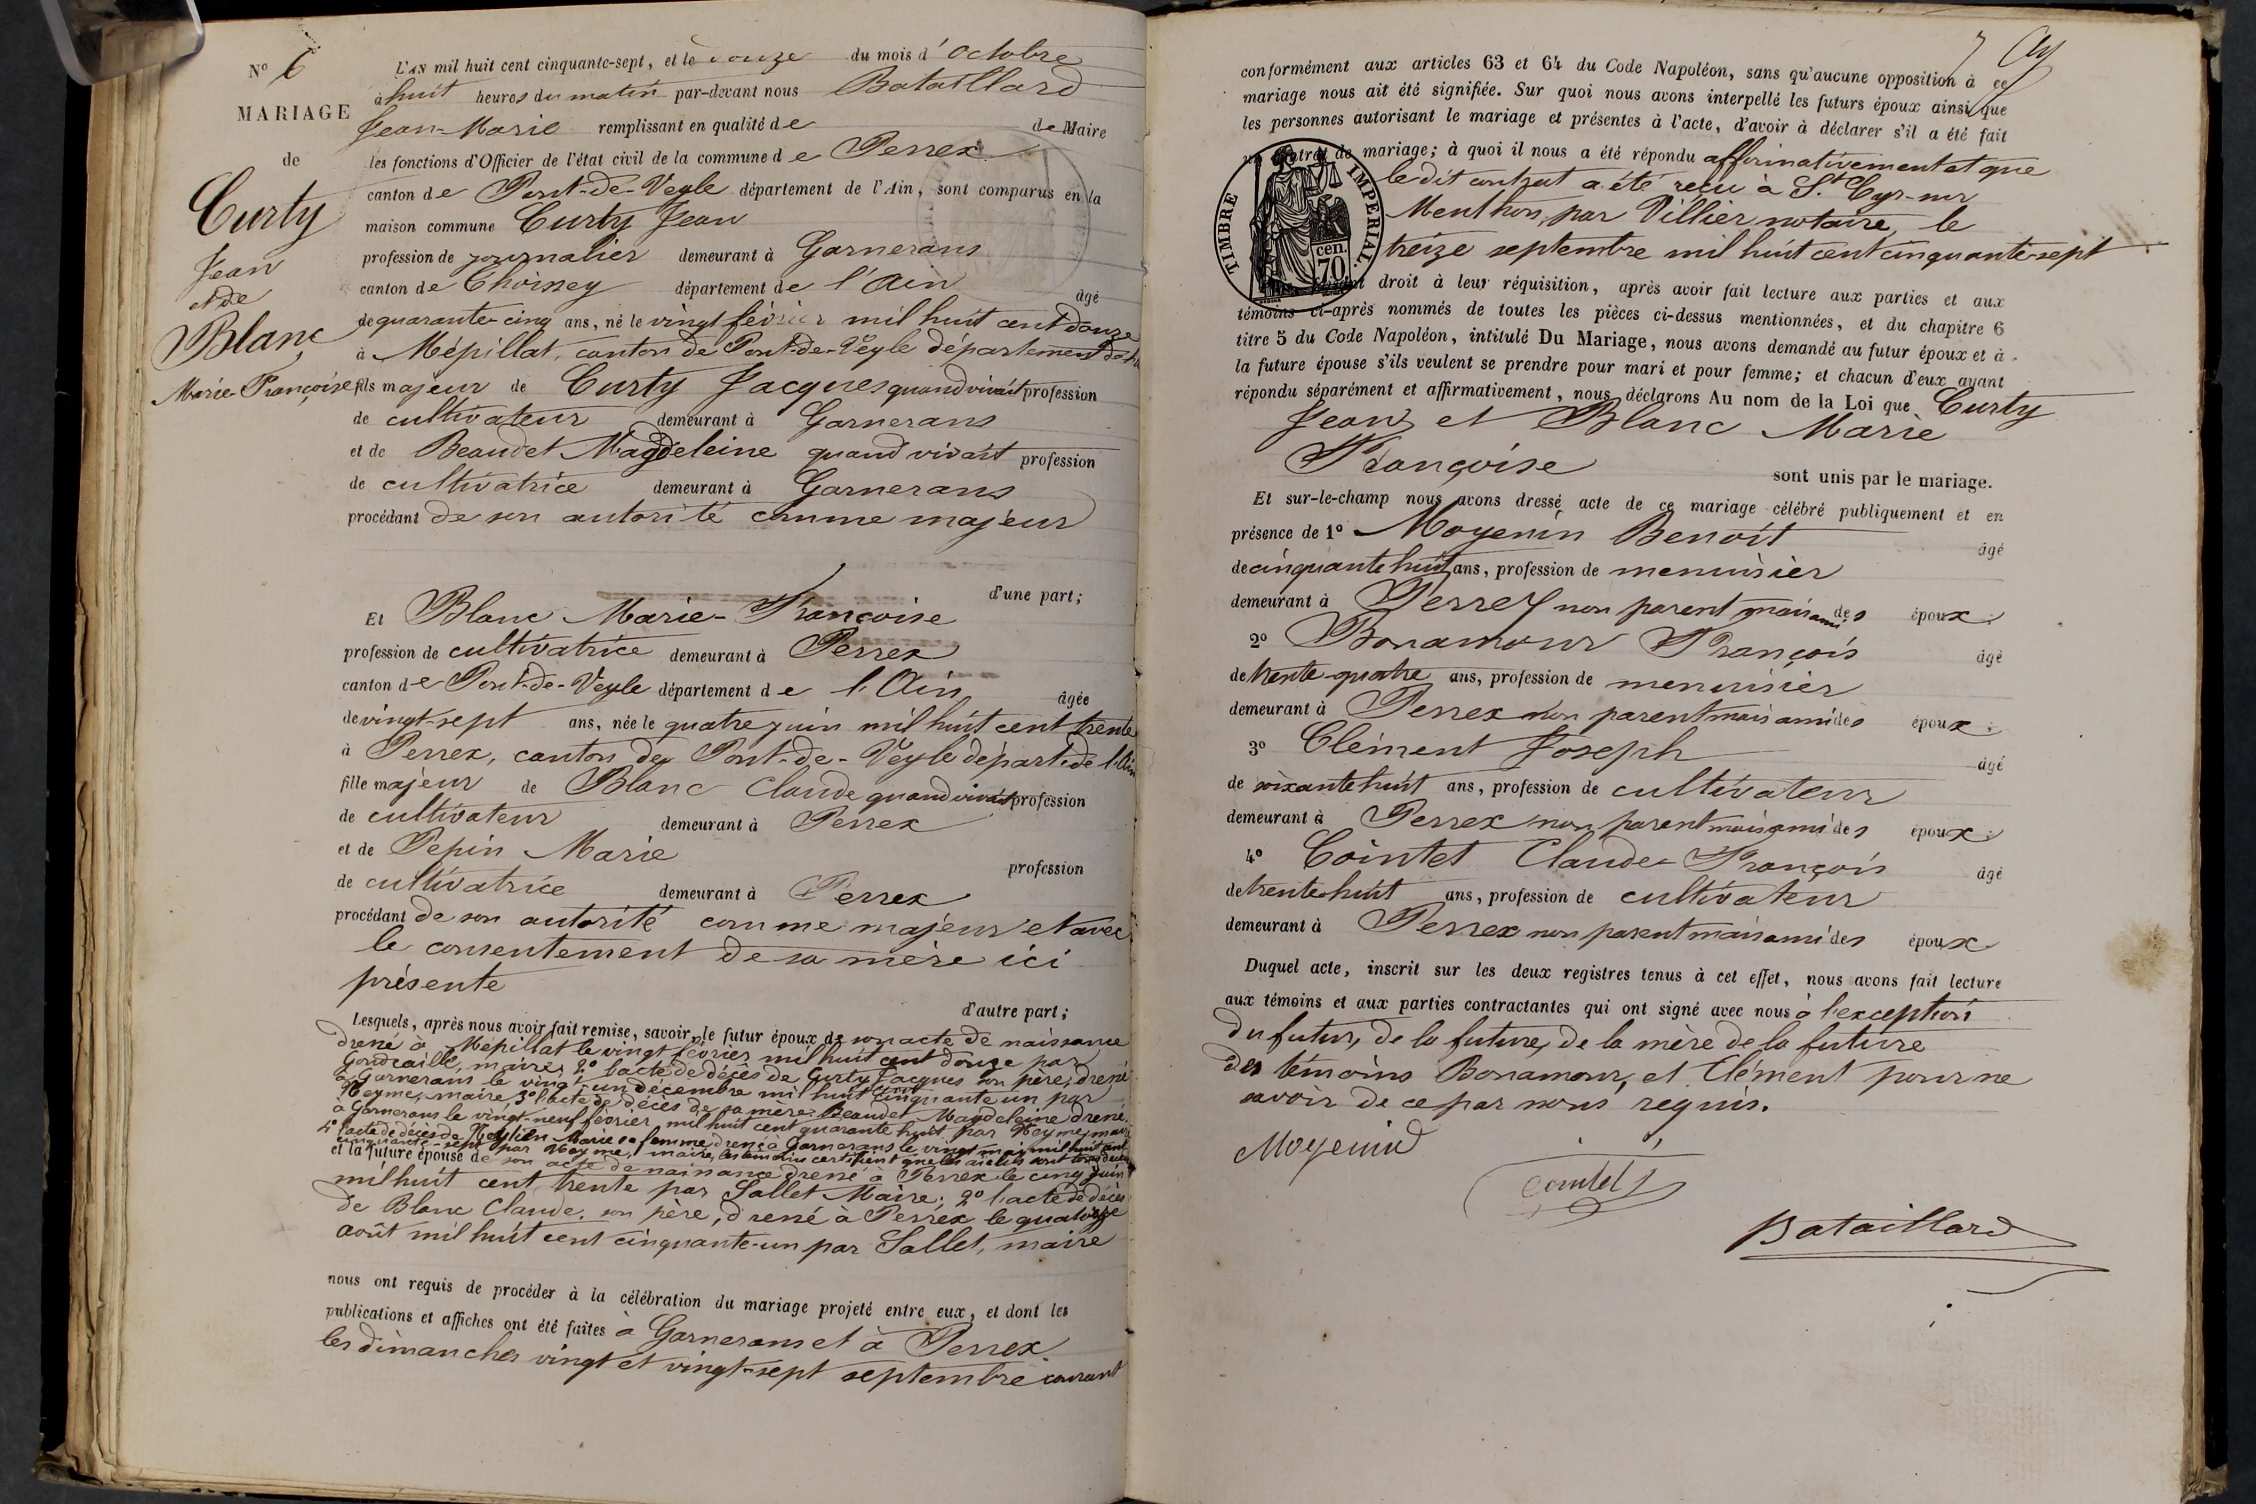 N° 6
MARIAGE
de
Curty
Jean
et de
Blanc
Marie-Françoise
L'AN mil huit cent cinquante-sept, et le douze du mois d'Octobre
à huit heures du matin par-devant nous Bataillard
Jean-Marie remplissant en qualité de de Maire
les fonctions d'Officier de l'état civil de la commune de Perrex
canton de Pont-de-Veyle département de l'Ain, sont comparus en la
maison commune Curty Jean
profession de journalier demeurant à Garnerans
canton de Thoissey département de l'Ain âgé
de quarante-cinq ans, né le vingt février mil huit cent douze
à Mépillat, canton de Pont-de-Veyle département de l'Ain
fils majeur de Curty Jacques quand vivait profession
de cultivateur demeurant à Garnerans
et de Beaudet Magdeleine quand vivait profession
de cultivatrice demeurant à Garnerans
procédant de son autorité comme majeur
d'une part;
Et Blanc Marie-Françoise
profession de cultivatrice demeurant à Perrex
canton de Pont-de-Veyle département de l'Ain âgée
de vingt-sept ans, née le quatre juin mil huit cent trente
à Perrex, canton de Pont-de-Veyle départ. de l'Ain
fille majeur de Blanc Claude quand vivait profession
de cultivateur demeurant à Perrex
et de Pepin Marie profession
de cultivatrice demeurant à Perrex
procédant de son autorité comme majeur et avec
le consentement de sa mère ici
présente
d'autre part;
Lesquels, après nous avoir fait remise, savoir, le futur époux de son acte de naissance
dressé à Mépillat le vingt février mil huit cent douze par
maire, 2° l'acte de décès de Curty Jacques son père, dressé
à Garnerans le vingt-un décembre mil huit cent cinquante un par
Neyme, maire, 3° l'acte de décès de sa mère Beaudet Magdeleine dressé
à Garnerans le vingt-neuf février mil huit cent quarante huit par Neyme, maire
4° l'acte de décès de Marie sa femme, dressé à Garnerans le vingt mai mil huit cent
cinquante-sept par Neyme, maire, les témoins certifient que les aïeuls sont tous décédés
et la future épouse de son acte de naissance dressé à Perrex le cinq juin
mil huit cent trente par Sallet Maire; 2° l'acte de décès
de Blanc Claude, son père, dressé à Perrex le quatorze
août mil huit cent cinquante-un par Sallet, maire
nous ont requis de procéder à la célébration du mariage projeté entre eux, et dont les
publications et affiches ont été faites à Garnerans et à Perrex
les dimanches vingt et vingt-sept septembre courant
7
conformément aux articles 63 et 64 du Code Napoléon, sans qu'aucune opposition à ce
mariage nous ait été signifiée. Sur quoi nous avons interpellé les futurs époux ainsi que
les personnes autorisant le mariage et présentes à l'acte, d'avoir à déclarer s'il a été fait
de mariage; à quoi il nous a été répondu affirmativement et que
le dit contrat a été reçu à St Cyr-sur
Menthon, par Villier notaire, le
treize septembre mil huit cent cinquante-sept
TIMBRE IMPERIAL.
cen.
70
droit à leur réquisition, après avoir fait lecture aux parties et aux
témoins ci-après nommés de toutes les pièces ci-dessus mentionnées, et du chapitre 6
titre 5 du Code Napoléon, intitulé Du Mariage, nous avons demandé au futur époux et à
la future épouse s'ils veulent se prendre pour mari et pour femme; et chacun d'eux ayant
répondu séparément et affirmativement, nous déclarons Au nom de la Loi que Curty
Jean et Blanc Marie
Françoise sont unis par le mariage.
Et sur-le-champ nous avons dressé acte de ce mariage célébré publiquement et en
présence de 1° Moyenin Benoît âgé
de cinquante huit ans, profession de menuisier
demeurant à Perrex non parent mais ami des époux.
2° Bonamour François âgé
de trente-quatre ans, profession de menuisier
demeurant à Perrex non parent mais ami des époux.
3° Clément Joseph âgé
de soixante huit ans, profession de cultivateur
demeurant à Perrex non parent mais ami des époux
4° Cointet Claude-François âgé
de trente-huit ans, profession de cultivateur
demeurant à Perrex non parent mais ami des époux
Duquel acte, inscrit sur les deux registres tenus à cet effet, nous avons fait lecture
aux témoins et aux parties contractantes qui ont signé avec nous à l'exception
du futur, de la future, de la mère de la future
des témoins Bonamour, et Clément pour ne
savoir de ce par nous requis.
Moyenin
Cointet
Bataillard